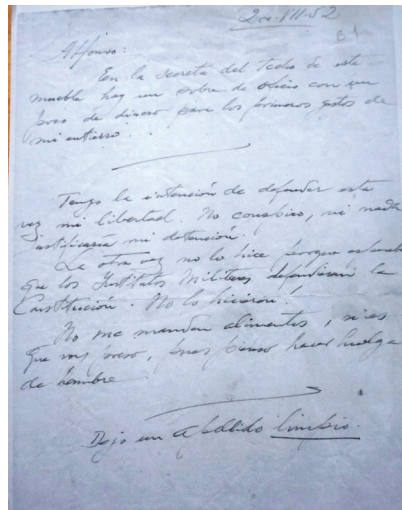 20.VIII.52
B1
Alfonso:
En la secreta del techo de este
mueble hay un sobre de oficio con un
poco de dinero para los primeros gastos de
mi entierro.
Tengo la intención de defender esta
vez mi libertad. No conspiro, ni nada
justificaría mi detención.
La otra vez no lo hice porque
que los Institutos Militares defenderían la
Constitución. No lo hicieron!
No me manden alimentos, si es
que voy preso, pues pienso hacer huelga
de hambre.
Dejo un apellido limpio.